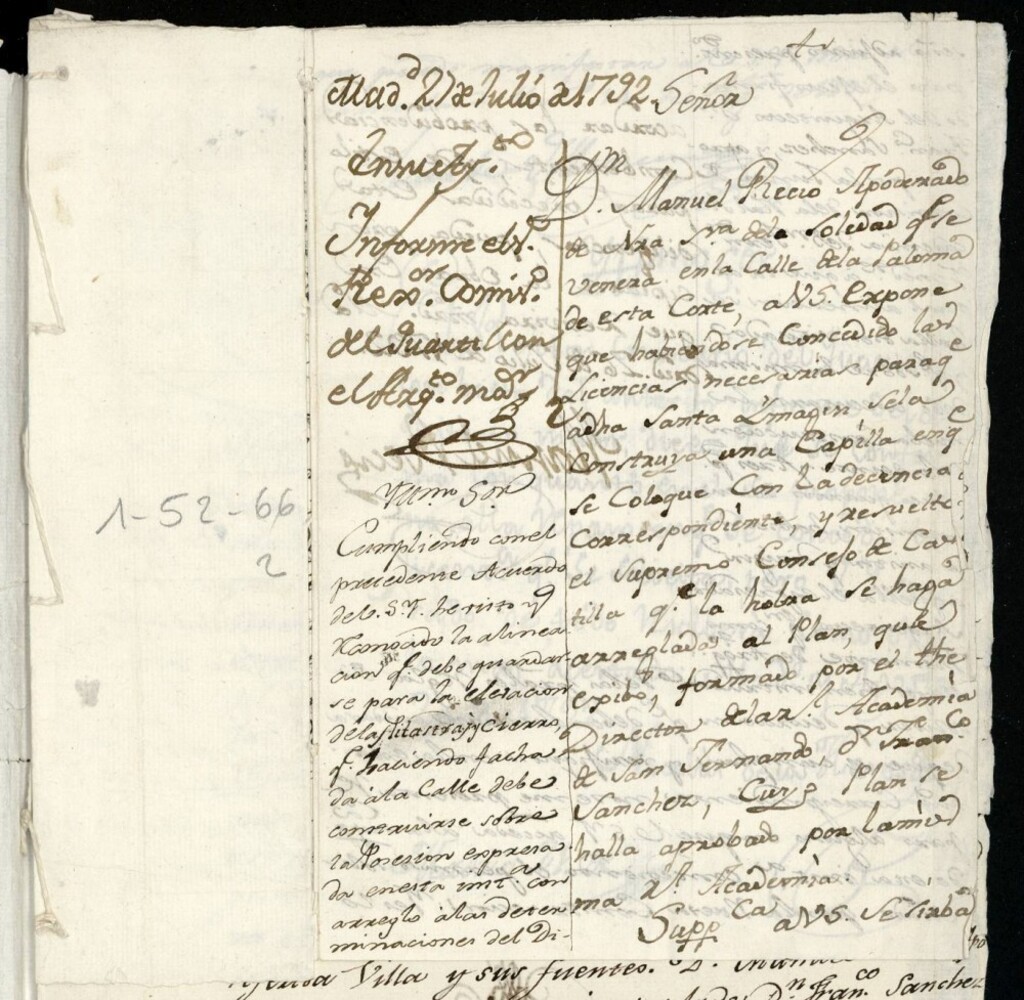 Mad.d 27 de Julio de 1792
En su Ay.to
Informe el S.r
Rex.or Comis.o
del Quartel con
el Arq.to m.or
Yltmo Sor
Cumpliendo con el
precedente Acuerdo
de V.S.Y. he visto y
reconocido la alinea
cion q.e debe guardar
se para la elevacion
de las Pilastras y Cierro,
q.e haciendo facha
da à la Calle debe
construirse sobre
la Posesion expresa
da en esta inst.a con
arreglo à las deter
minaciones del Di-
1-52-66
2
Señor
D.n Manuel Recio Apoderado
de Nra. Sra. de la Soledad q.e se
venera en la Calle de la Paloma
de esta Corte, a VS. Expone
que habiendose Concedido las
Licencias necesarias para q.e
a dha Santa Ymagen se la
construya una Capilla en q.e
se Coloque Con la decencia
correspondiente, y resuelto
el Supremo Consejo de Cas
tilla q.e la hobra se haga
arreglada al Plan, que
exibo, formado por el the
Director de la r.l Academia
de San Fernando, d.n Fran.co
Sanchez, Cuyo Plan se
halla aprobado por la mis
ma r.l Academia.
Supp.ca a VS. se sirba
Villa y sus fuentes. D.
D.n Fran.co Sanchez